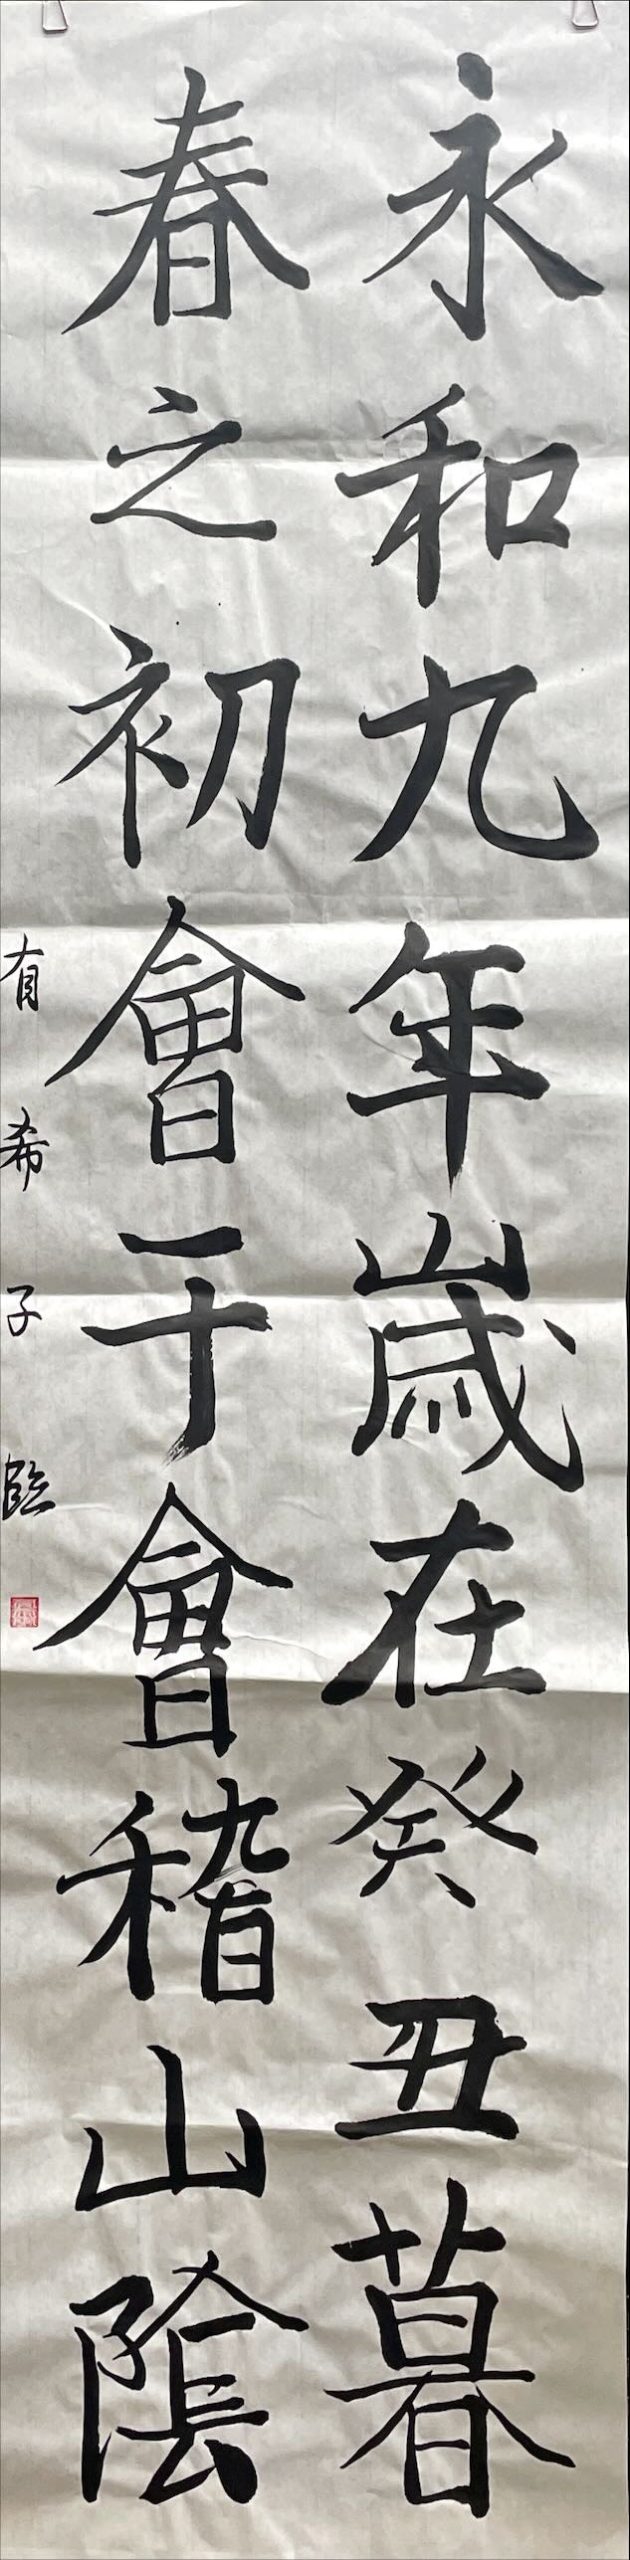 永和九年歳在癸丑暮
春之初會于會稽山陰
有希子臨